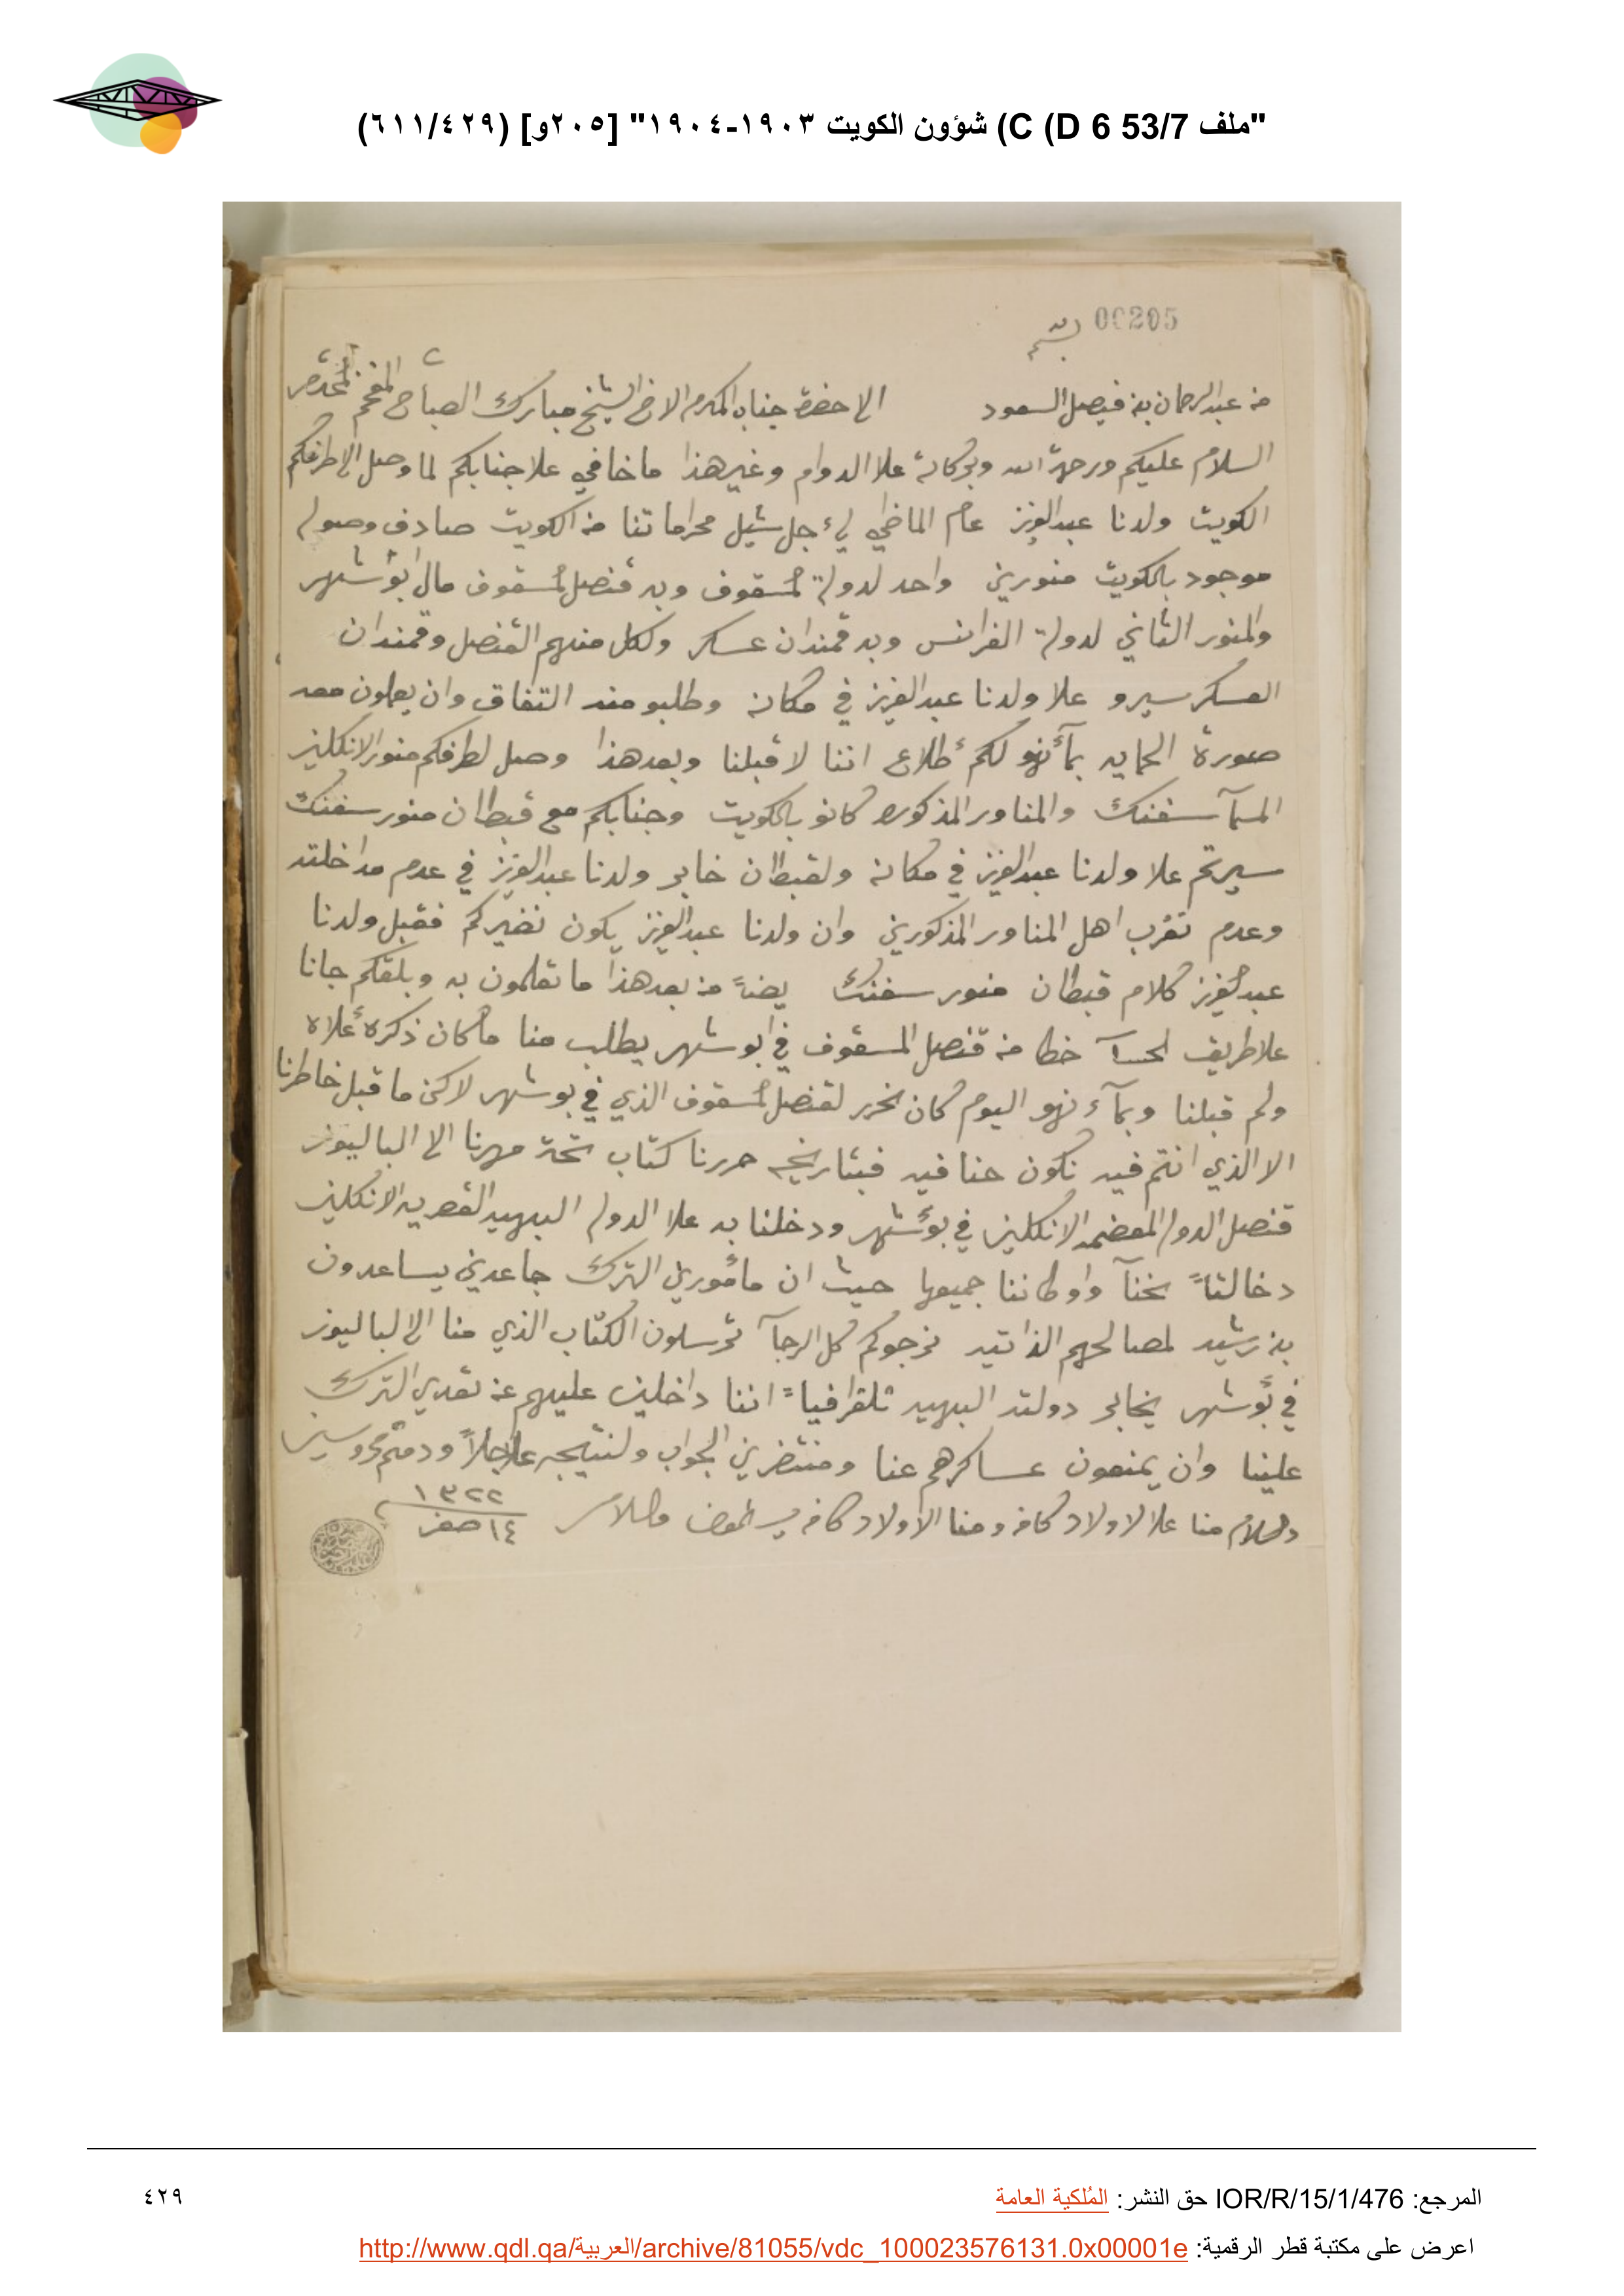 "ملف 53/7 C (D 6) شؤون الكويت ١٩٠٣-١٩٠٤" [٢٠٥و] (٦١١/٤٢٩)
00205
بسمه
من عبدالرحمان بن فيصل السعود الا حضرة جناب المكرم الاخ الشيخ مبارك الصباح المفخم المحترم
السلام عليكم ورحمة الله وبركاته علا الدوام وغير هذا ما خافي علا جنابكم لما وصل الا طرفكم
الكويت ولدنا عبدالعزيز عام الماضي لئجل شيل محراماتنا من الكويت صادف وصوله
موجود بالكويت منورين واحد لدولة المسقوف وبه قنصل المسقوف مال ابوشهر
والمنور الثاني لدولة الفرانس وبه قمندان عسكر ولكل منهم القنصل وقمندان
العسكر سيرو علا ولدنا عبدالعزيز في مكانه وطلبو منه التفاق وان يعملون معه
صورة الحمايه بمآئنهو لكم أطلاع اننا لا قبلنا وبعد هذا وصل لطرفكم منور الانكليز
المسمآ سفنك والمناور المذكوره كانو بالكويت وجنابكم مع قبطان منور سفنك
سيرتم علا ولدنا عبدالعزيز في مكانه ولقبطان خابر ولدنا عبدالعزيز في عدم مداخلته
وعدم تقرب اهل المناور المذكورين وان ولدنا عبدالعزيز يكون نضيركم فقبل ولدنا
عبدلعزيز كلام قبطان منور سفنك يضاً من بعد هذا ما تعلمون به وبلغكم جانا
علا طريق لحسآ خط من قنصل المسقوف في ابوشهر يطلب منا ما كان ذكره أعلاه
ولم قبلنا وبمآءنهو اليوم كان نحرر لقنصل المسقوف الذي في بوشهر لاكن ما قبل خاطرنا
الا الذي انتم فيه نكون حنا فيه فبتاريخه حررنا كتاب تحت مهرنا الا الباليوز
قنصل الدوله المعضمه الانكليز في بوشهر ودخلنا به علا الدوله البهيه القصريه الانكليز
دخالتاً نحنآ واوطاننا جميعها حيث ان مأمورين الترك جاعدين يساعدون
بن رشيد لمصالحهم الذاتيه نرجوكم كل الرجآ ترسلون الكتاب الذي منا الا لباليوز
في بوشهر يخابر دولته البهيه تلقرافياً اننا داخلين عليهم عن تعدي الترك
علينا وان يمنعون عساكرهم عنا ومنتضرين الجواب ولنتيجه عاجلاً ودمتم محروسين
ولسلام منا علا لاولاد كافه ومنا الاولاد كافه ولسلام
١٣٢٢
١٤ صفر
المرجع: IOR/R/15/1/476 حق النشر: المُلكية العامة
٤٢٩
اعرض على مكتبة قطر الرقمية: http://www.qdl.qa/العربية/archive/81055/vdc_100023576131.0x00001e